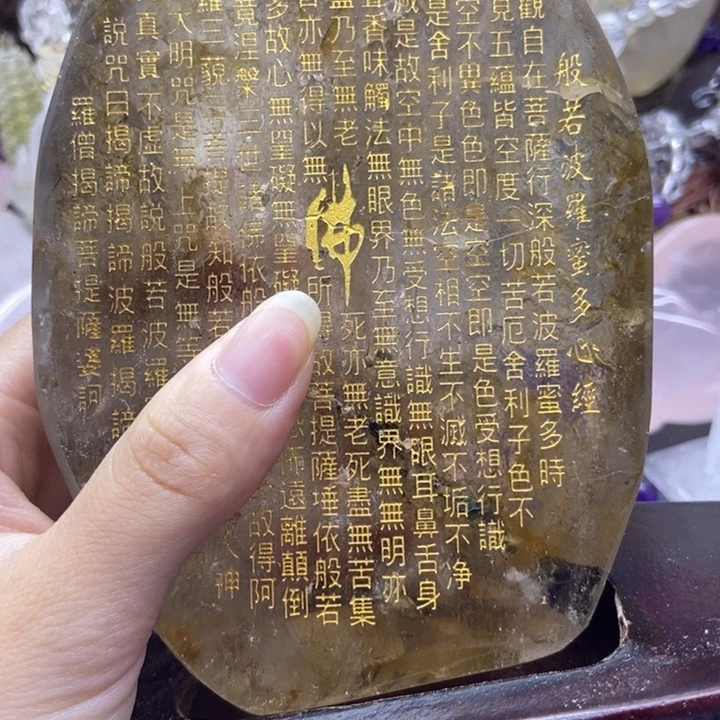 般若波羅蜜多心經
觀自在菩薩行深般若波羅蜜多時
見五蘊皆空度一切苦厄舍利子色不
空不異色色即是空空即是色受想行識
是舍利子是諸法空相不生不滅不垢不净
滅是故空中無色無受想行識無眼耳鼻舌身
香味觸法無眼界乃至無意識界無無明亦
盡乃至無老死亦無老死盡無苦集
佛
亦無得以無所得故菩提薩埵依般若
多故心無罣礙無罣礙怖遠離顛倒
涅槃三世諸佛依般故得阿
羅三藐三菩提知般若神
大明咒是無上咒是無等
真實不虛故說般若波羅
說咒曰揭諦揭諦波羅揭諦
羅僧揭諦菩提薩婆訶